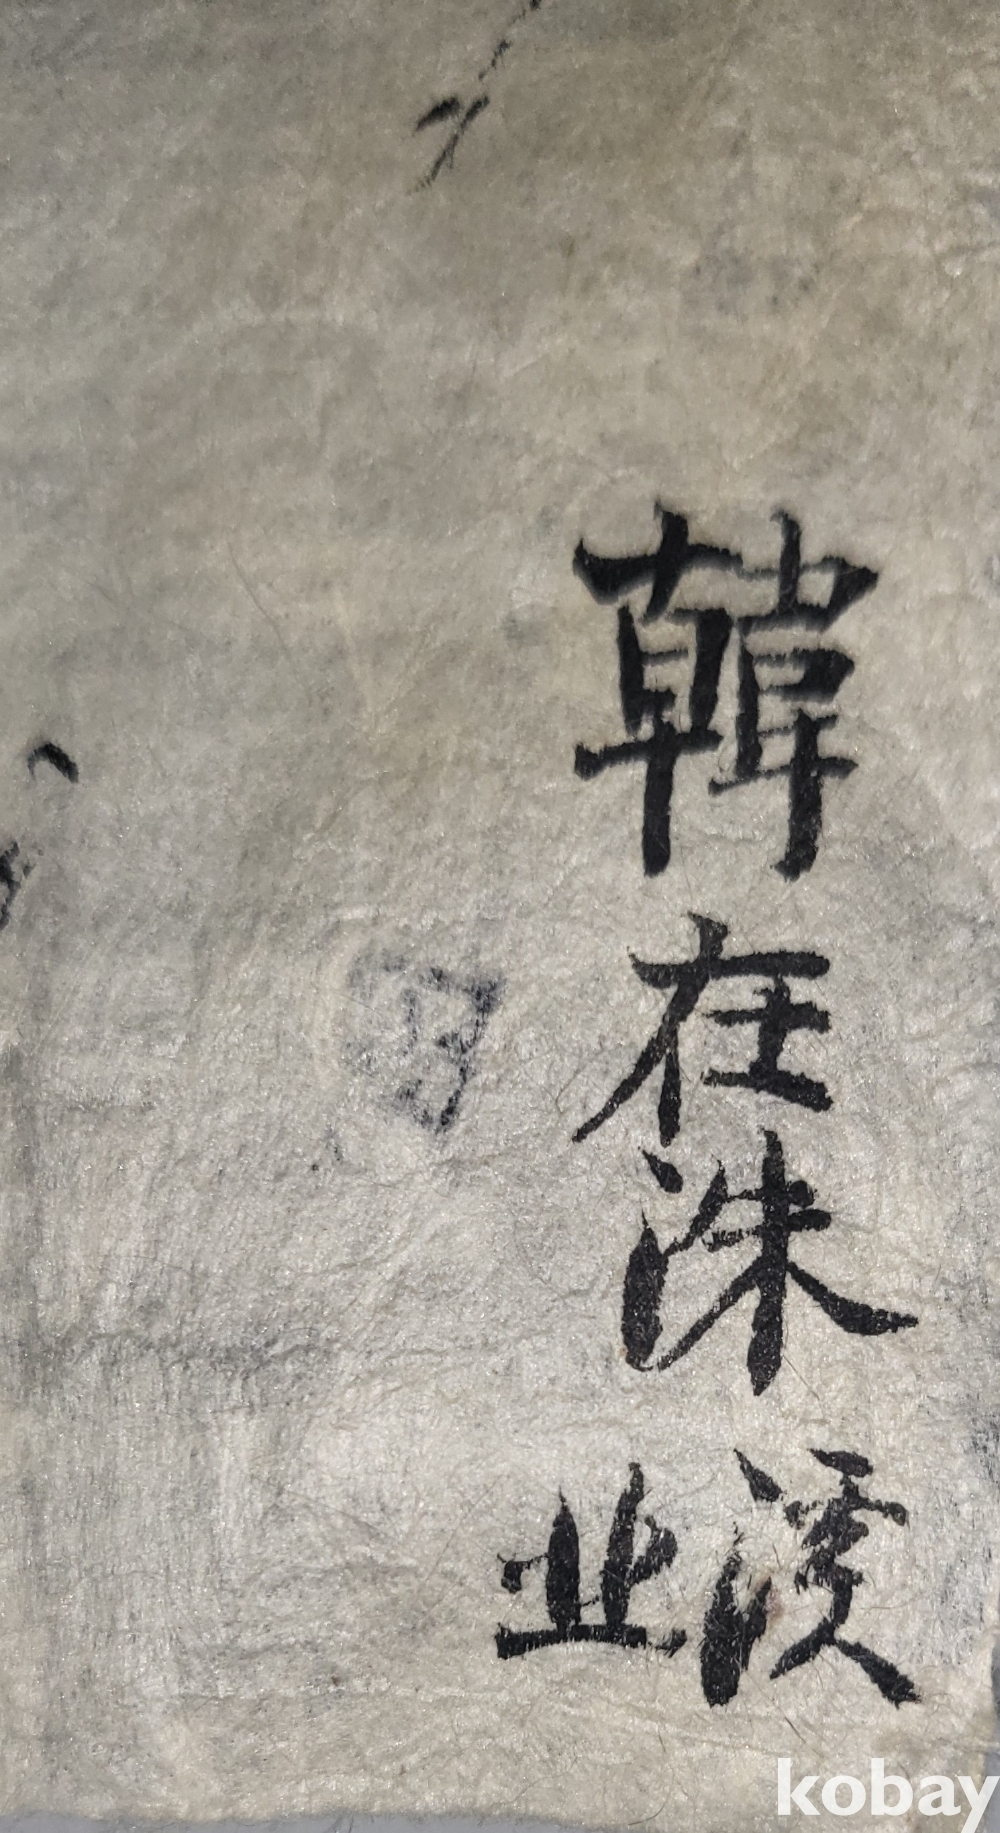 韓在洙
溪
业
kobay